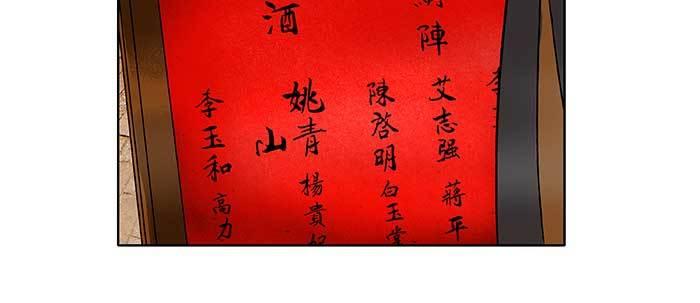 陣
艾志强
蔣平
陳啓明
白玉堂
姚青
楊貴妃
酒
山
李玉和
高力